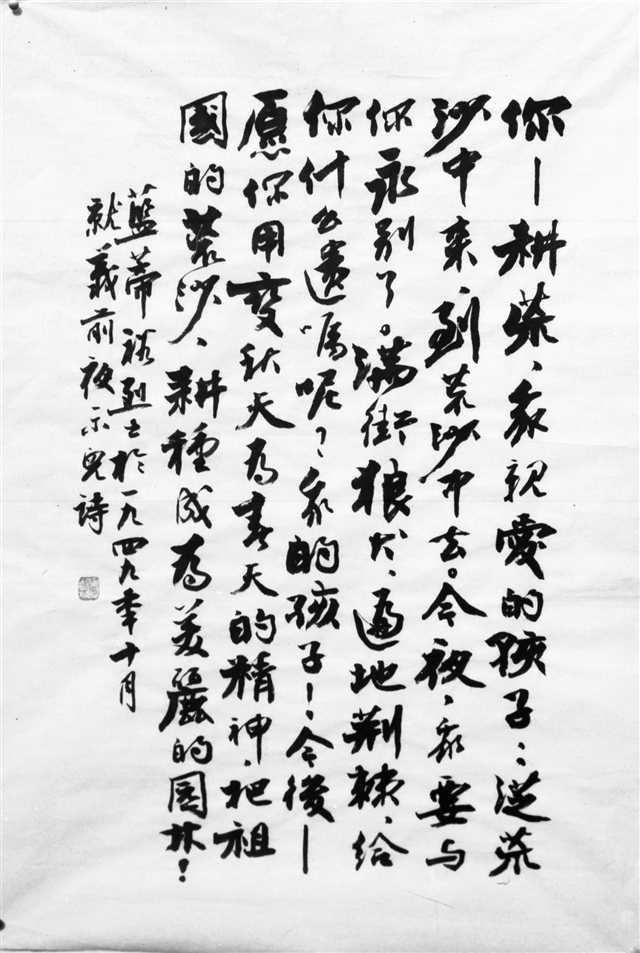 你—耕荒、我親愛的孩子:從荒
沙中来、到荒沙中去。今夜、我要与
你永别了。满街狼犬、遍地荆棘、给
你什么遗嘱呢?我的孩子!今後—
愿你用變秋天为春天的精神、把祖
國的荒沙、耕種成为美麗的園林!
藍蒂裕烈士於一九四九年十月
就義前夜示兒詩